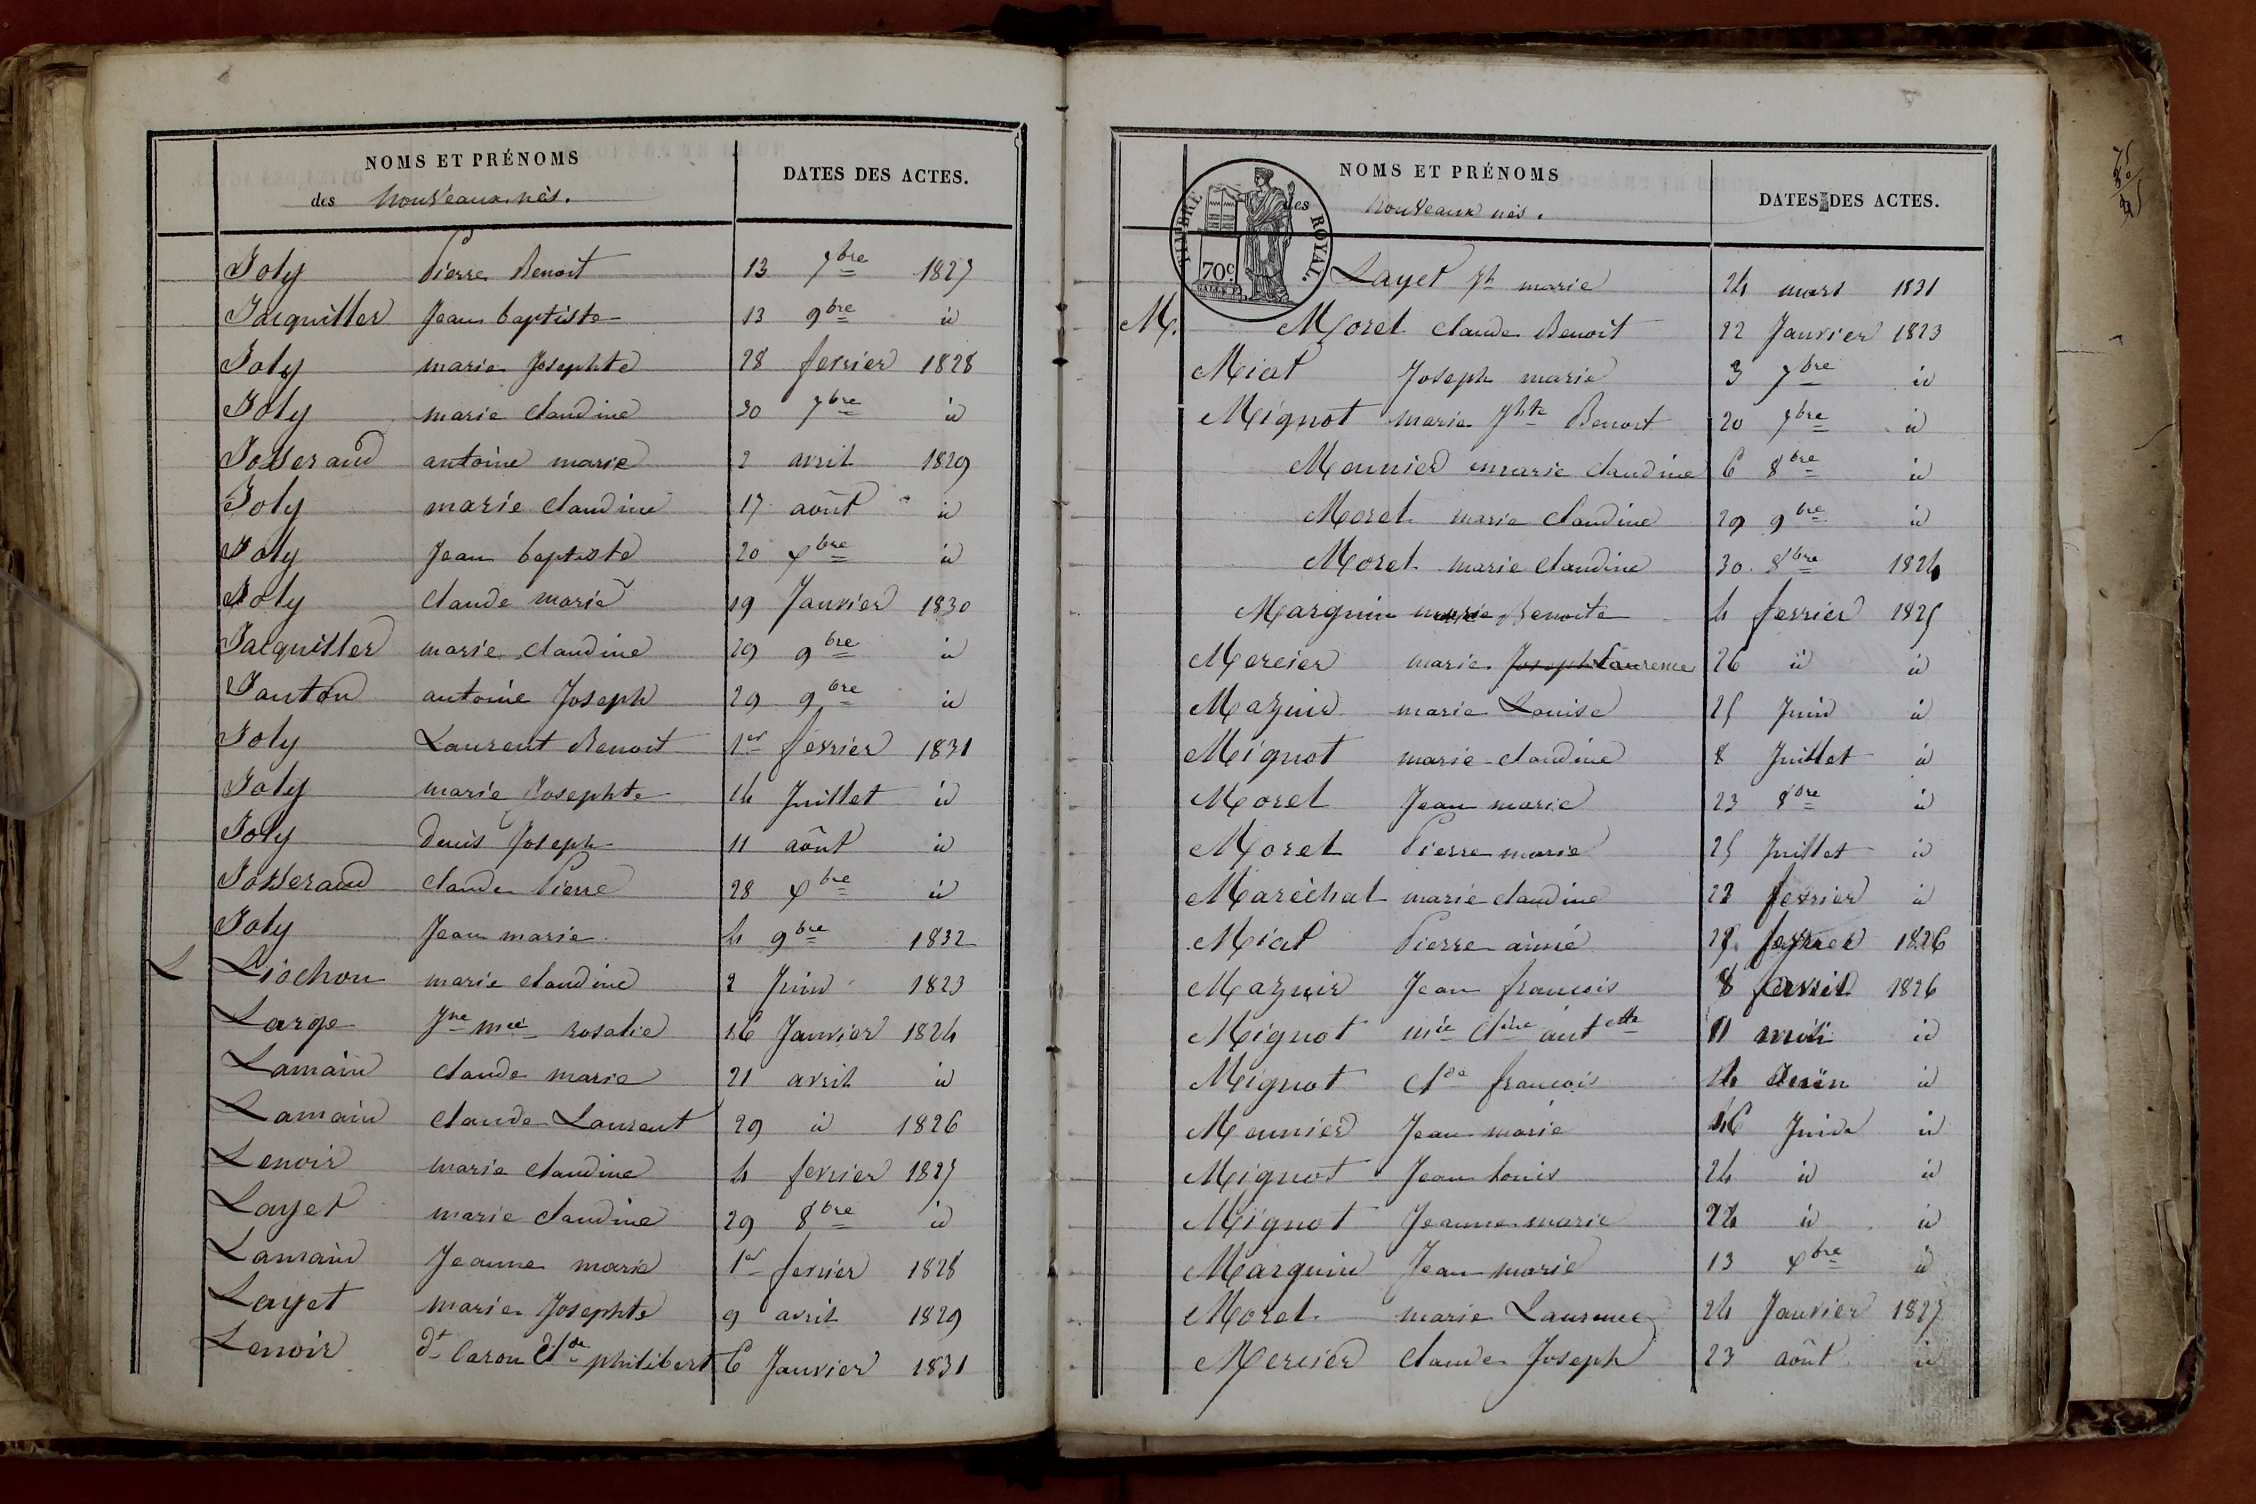 NOMS ET PRÉNOMS
des Nouveaux nés.
DATES DES ACTES.
Joly Pierre Benoit 13 7bre 1827
Jacquiller Jean baptiste 13 9bre id
Joly marie Josephte 28 fevrier 1828
Joly marie claudine 30 7bre id
Josserand antoine marie 2 avril 1829
Joly marie claudine 17 août id
Joly Jean baptiste 20 xbre id
Joly claude marie 19 Janvier 1830
Jacquiller marie claudine 29 9bre id
Janton antoine Joseph 29 9bre id
Joly Laurent Benoit 1er fevrier 1831
Joly marie Josephte 14 Juillet id
Joly denis Joseph 11 août id
Josserand claude Pierre 28 xbre id
Joly Jean marie 4 9bre 1832
L Liochon marie claudine 2 Juin 1823
Large Jne mie rosalie 16 Janvier 1824
Lamain claude marie 21 avril id
Lamain claude Laurent 29 id 1826
Lenoir marie claudine 4 fevrier 1827
Layet marie claudine 29 8bre id
Lamain Jeanne marie 1er fevrier 1828
Layet marie Josephte 9 avril 1829
Lenoir dt Caron Clde philibert 6 Janvier 1831
NOMS ET PRÉNOMS
des Nouveaux nés.
DATES DES ACTES.
TIMBRE ROYAL
70c
Layet Jh marie 24 mars 1831
M. Morel claude Benoit 22 Janvier 1823
Miat Joseph marie 3 7bre id
Mignot marie Jhte Benoit 20 7bre id
Meunier marie claudine 6 8bre id
Morel marie Claudine 29 9bre id
Morel marie Claudine 30 8bre 1824
Marguin marie Benoite 4 fevrier 1825
Mercier marie Joseph Laurence 26 id id
Mazuir marie Louise 25 Juin id
Mignot marie claudine 8 Juillet id
Morel Jean marie 23 8bre id
Morel Pierre marie 25 Juillet id
Maréchal marie claudine 22 fevrier id
Miat Pierre aimé fevrier 1826
Mazuir Jean francois 8 avril 1826
Mignot mie Cldne antette 11 id
Mignot Clde francois 14 Juin id
Meunier Jean marie 16 Juin id
Mignot Jean Louis 24 id id
Mignot Jeanne marie 24 id id
Marguin Jean marie 13 xbre id
Morel marie Laurence 24 Janvier 1827
Mercier Claude Joseph 23 août id